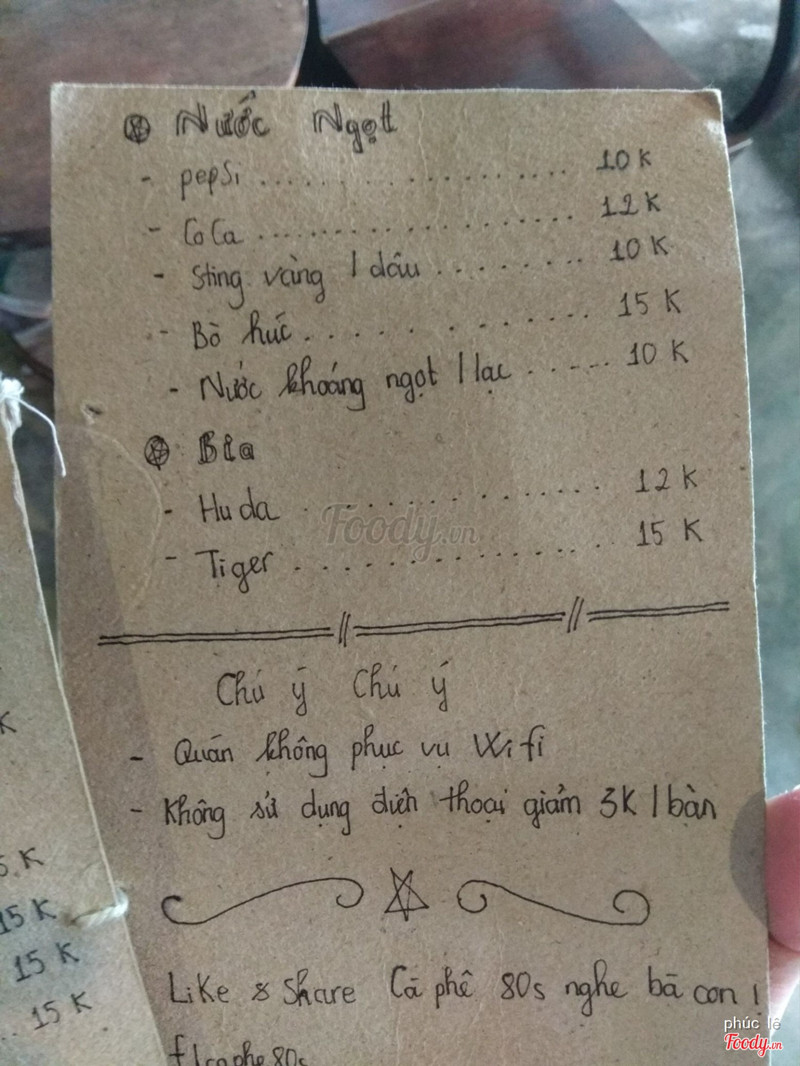 Nước Ngọt
- pepSi .................... 10 K
- CoCa .................... 12 K
- Sting vàng / dâu ........ 10 K
- Bò húc .................. 15 K
- Nước khoáng ngọt / lạc ...... 10 K
Bia
- Huda .................... 12 K
- Tiger ................... 15 K
Chú ý Chú ý
- Quán không phục vụ Wifi
- Không sử dụng điện thoại giảm 3K / bàn
Like & Share Cà phê 80s nghe bà con !
f/caphe80s
K
5 K
15 K
15 K
15 K
Foody.vn
phúc lê
Foody.vn